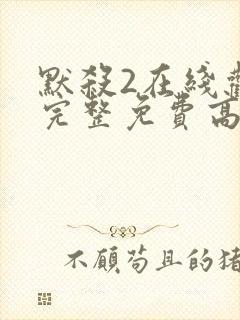 默殺2在綫
完整免費高
不顧苟且的猪